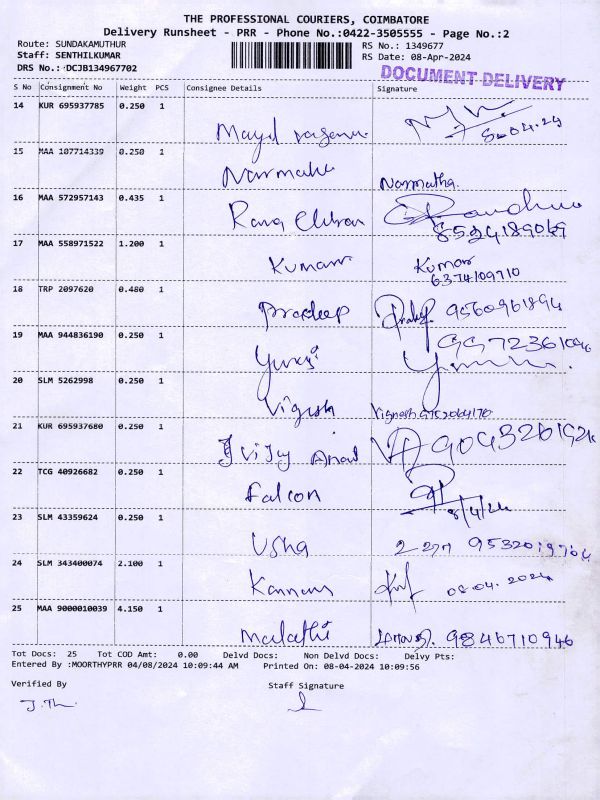 THE PROFESSIONAL COURIERS, COIMBATORE
Delivery Runsheet - PRR - Phone No.:0422-3505555 - Page No.:2
Route: SUNDAKAMUTHUR RS No.: 1349677
Staff: SENTHILKUMAR RS Date: 08-Apr-2024
DRS No.: DCJB134967702 DOCUMENT DELIVERY
S No Consignment No Weight PCS Consignee Details Signature
14 KUR 695937785 0.250 1
Mayil 8.04.24
15 MAA 107714339 0.250 1
Narmatha.
16 MAA 572957143 0.435 1
8524189069
17 MAA 558971522 1.200 1
Kumar Kumar
6374109710
18 TRP 2097620 0.480 1
Pradeep 9560961894
19 MAA 944836190 0.250 1
20 SLM 5262998 0.250 1
Vignesh
21 KUR 695937680 0.250 1
Vijay Anand
22 TCG 40926682 0.250 1
Falcon 8/4/24
23 SLM 43359624 0.250 1
Usha உஷா
24 SLM 343400074 2.100 1
Kannan 08.04.2024
25 MAA 9000010039 4.150 1
Malathi 9846710946
Tot Docs: 25 Tot COD Amt: 0.00 Delvd Docs: Non Delvd Docs: Delvy Pts:
Entered By :MOORTHYPRR 04/08/2024 10:09:44 AM Printed On: 08-04-2024 10:09:56
Verified By Staff Signature